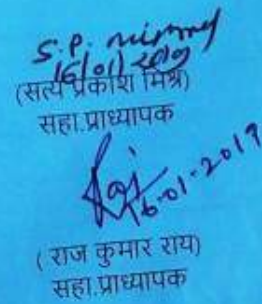 S.P. Mishra
16/01/2019
(सत्य प्रकाश मिश्र)
सहा.प्राध्यापक
Raj
16-01-2019
( राज कुमार राय)
सहा.प्राध्यापक